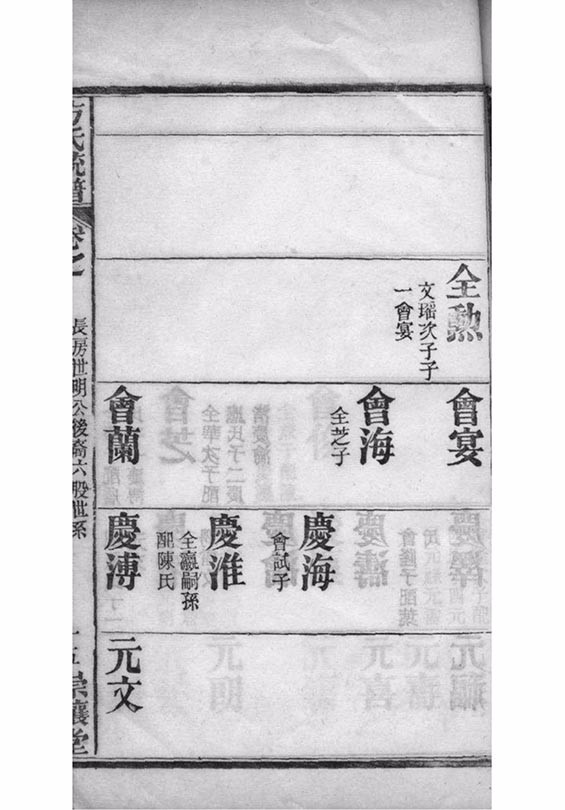 全勲
文瑶次子子
一會宴
會宴
會海
全芝子
會蘭
慶海
會試子
慶淮
全瀛嗣孫
配陳氏
慶溥
元文
方氏統譜
卷之一
長房世明公後裔六股世系
崇讓堂